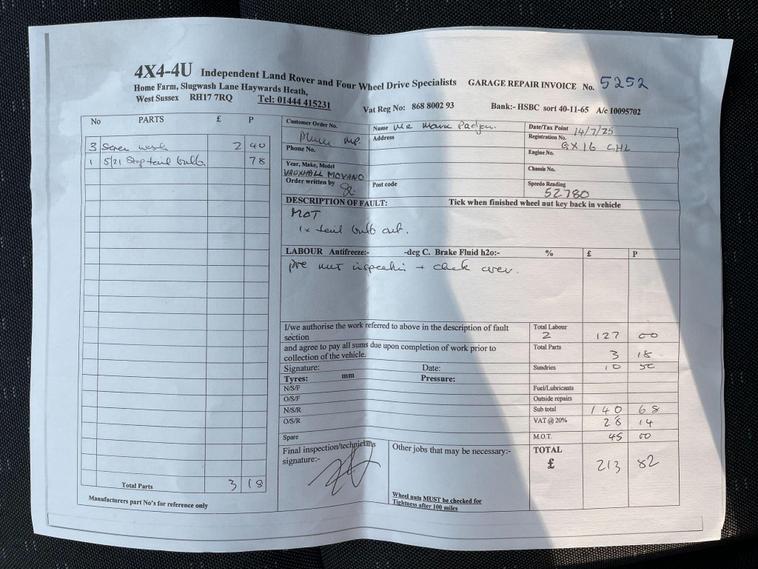 4X4-4U Independent Land Rover and Four Wheel Drive Specialists GARAGE REPAIR INVOICE No. 5252
Home Farm, Slugwash Lane Haywards Heath,
West Sussex RH17 7RQ Tel: 01444 415231 Vat Reg No: 868 8002 93 Bank:- HSBC sort 40-11-65 A/c 10095702
No PARTS £ P
3 Screen wash 2 40
1 5/21 Stop tail bulb 78
Total Parts 3 18
Manufacturers part No's for reference only
Customer Order No.
Phone No.
Year, Make, Model
VAUXHALL MOVANO
Order written by
Name Mr Mark
Address
Post code
Date/Tax Point 14/7/25
Registration No.
GX16 CHL
Engine No.
Chassis No.
Speedo Reading
52780
DESCRIPTION OF FAULT: Tick when finished wheel nut key back in vehicle
MOT
1x tail bulb out.
LABOUR Antifreeze:- -deg C. Brake Fluid h2o:- % £ P
pre mot inspection + check over.
I/we authorise the work referred to above in the description of fault
section
and agree to pay all sums due upon completion of work prior to
collection of the vehicle.
Signature: Date:
Tyres: mm Pressure:
N/S/F
O/S/F
N/S/R
O/S/R
Spare
Total Labour
2 127 00
Total Parts 3 18
Sundries 10 50
Fuel/Lubricants
Outside repairs
Sub total 140 68
VAT @ 20% 28 14
M.O.T. 45 00
TOTAL
£ 213 82
Final inspection/technicians
signature:-
Other jobs that may be necessary:-
Wheel nuts MUST be checked for
Tightness after 100 miles